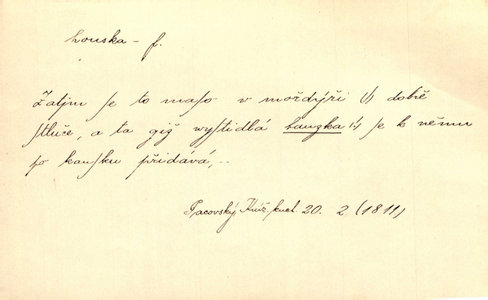 houska – f.
Zatjm se to maso v moždýři |/| dobře
stluče, a ta giž wystidlá hauska |/| se k němu
po kausku přidává,..
Pacovský, Kniž. kuch. 20. 2. (1811)